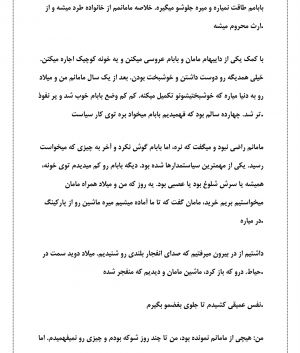 بابامم طاقت نمیاره و میره جلوشو میگیره. خلاصه مامانمم از خانواده طرد میشه و از
.ارث محروم میشه
با کمک یکی از داییهام مامان و بابام عروسی میکنن و یه خونه کوچیک اجاره میکنن.
خیلی همدیگه رو دوست داشتن و خوشبخت بودن. بعد از یک سال مامانم من و میلاد
رو به دنیا میاره که خوشبختیشونو تکمیل میکنه. کم کم وضع بابام خوب شد و پر نفوذ
.تر شد. چهارده سالم بود که فهمیدیم بابام میخواد بره توی کار سیاست
مامانم راضی نبود و میگفت که نره، اما بابام گوش نکرد و آخر به چیزی که میخواست
رسید. یکی از مهمترین سیاستمدارها شده بود. دیگه بابام رو کم میدیدم توی خونه،
همیشه یا سرش شلوغ بود یا عصبی بود. یه روز که من و میلاد همراه مامان
میخواستیم بریم خرید، مامان گفت که تا ما آماده میشیم میره ماشین رو از پارکینگ
.در میاره
داشتیم از در بیرون میرفتیم که صدای انفجار بلندی رو شنیدیم. میلاد دوید سمت در
.حیاط. درو که باز کرد، ماشین مامان و دیدیم که منفجر شده
.نفس عمیقی کشیدم تا جلوی بغضمو بگیرم
من: هیچی از مامانم نمونده بود، من تا چند روز شوکه بودم و چیزی رو نمیفهمیدم. اما